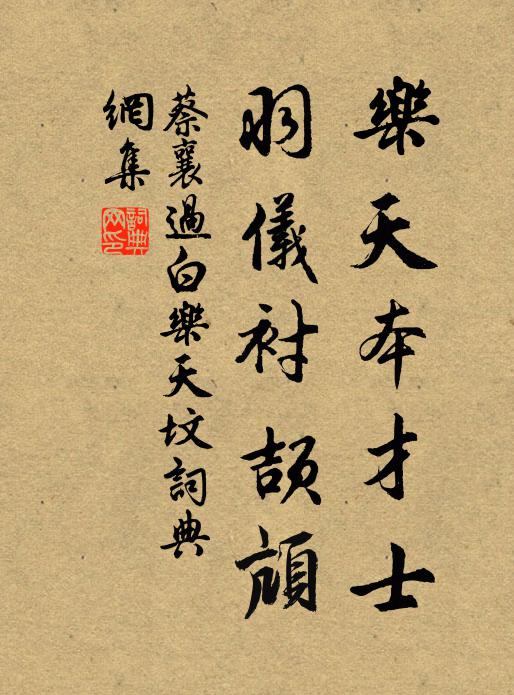 樂天本才士
羽儀衬頡頏
蔡襄過白樂天坟詞典
網集
詞典網印